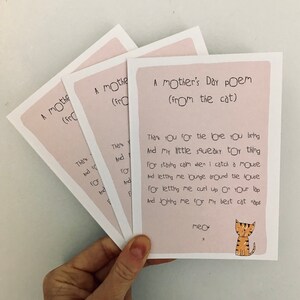 A Mother's Day Poem
(from the cat)
Thank you for the love you bring
And my little squeaky toy thing
For staying calm when I catch a mouse
And letting me lounge around the house
For letting me curl up on your lap
And loving me for my best cat naps
Meow
x
A Mother
(from
Than
And
For
And
For
And
A Mother
(from